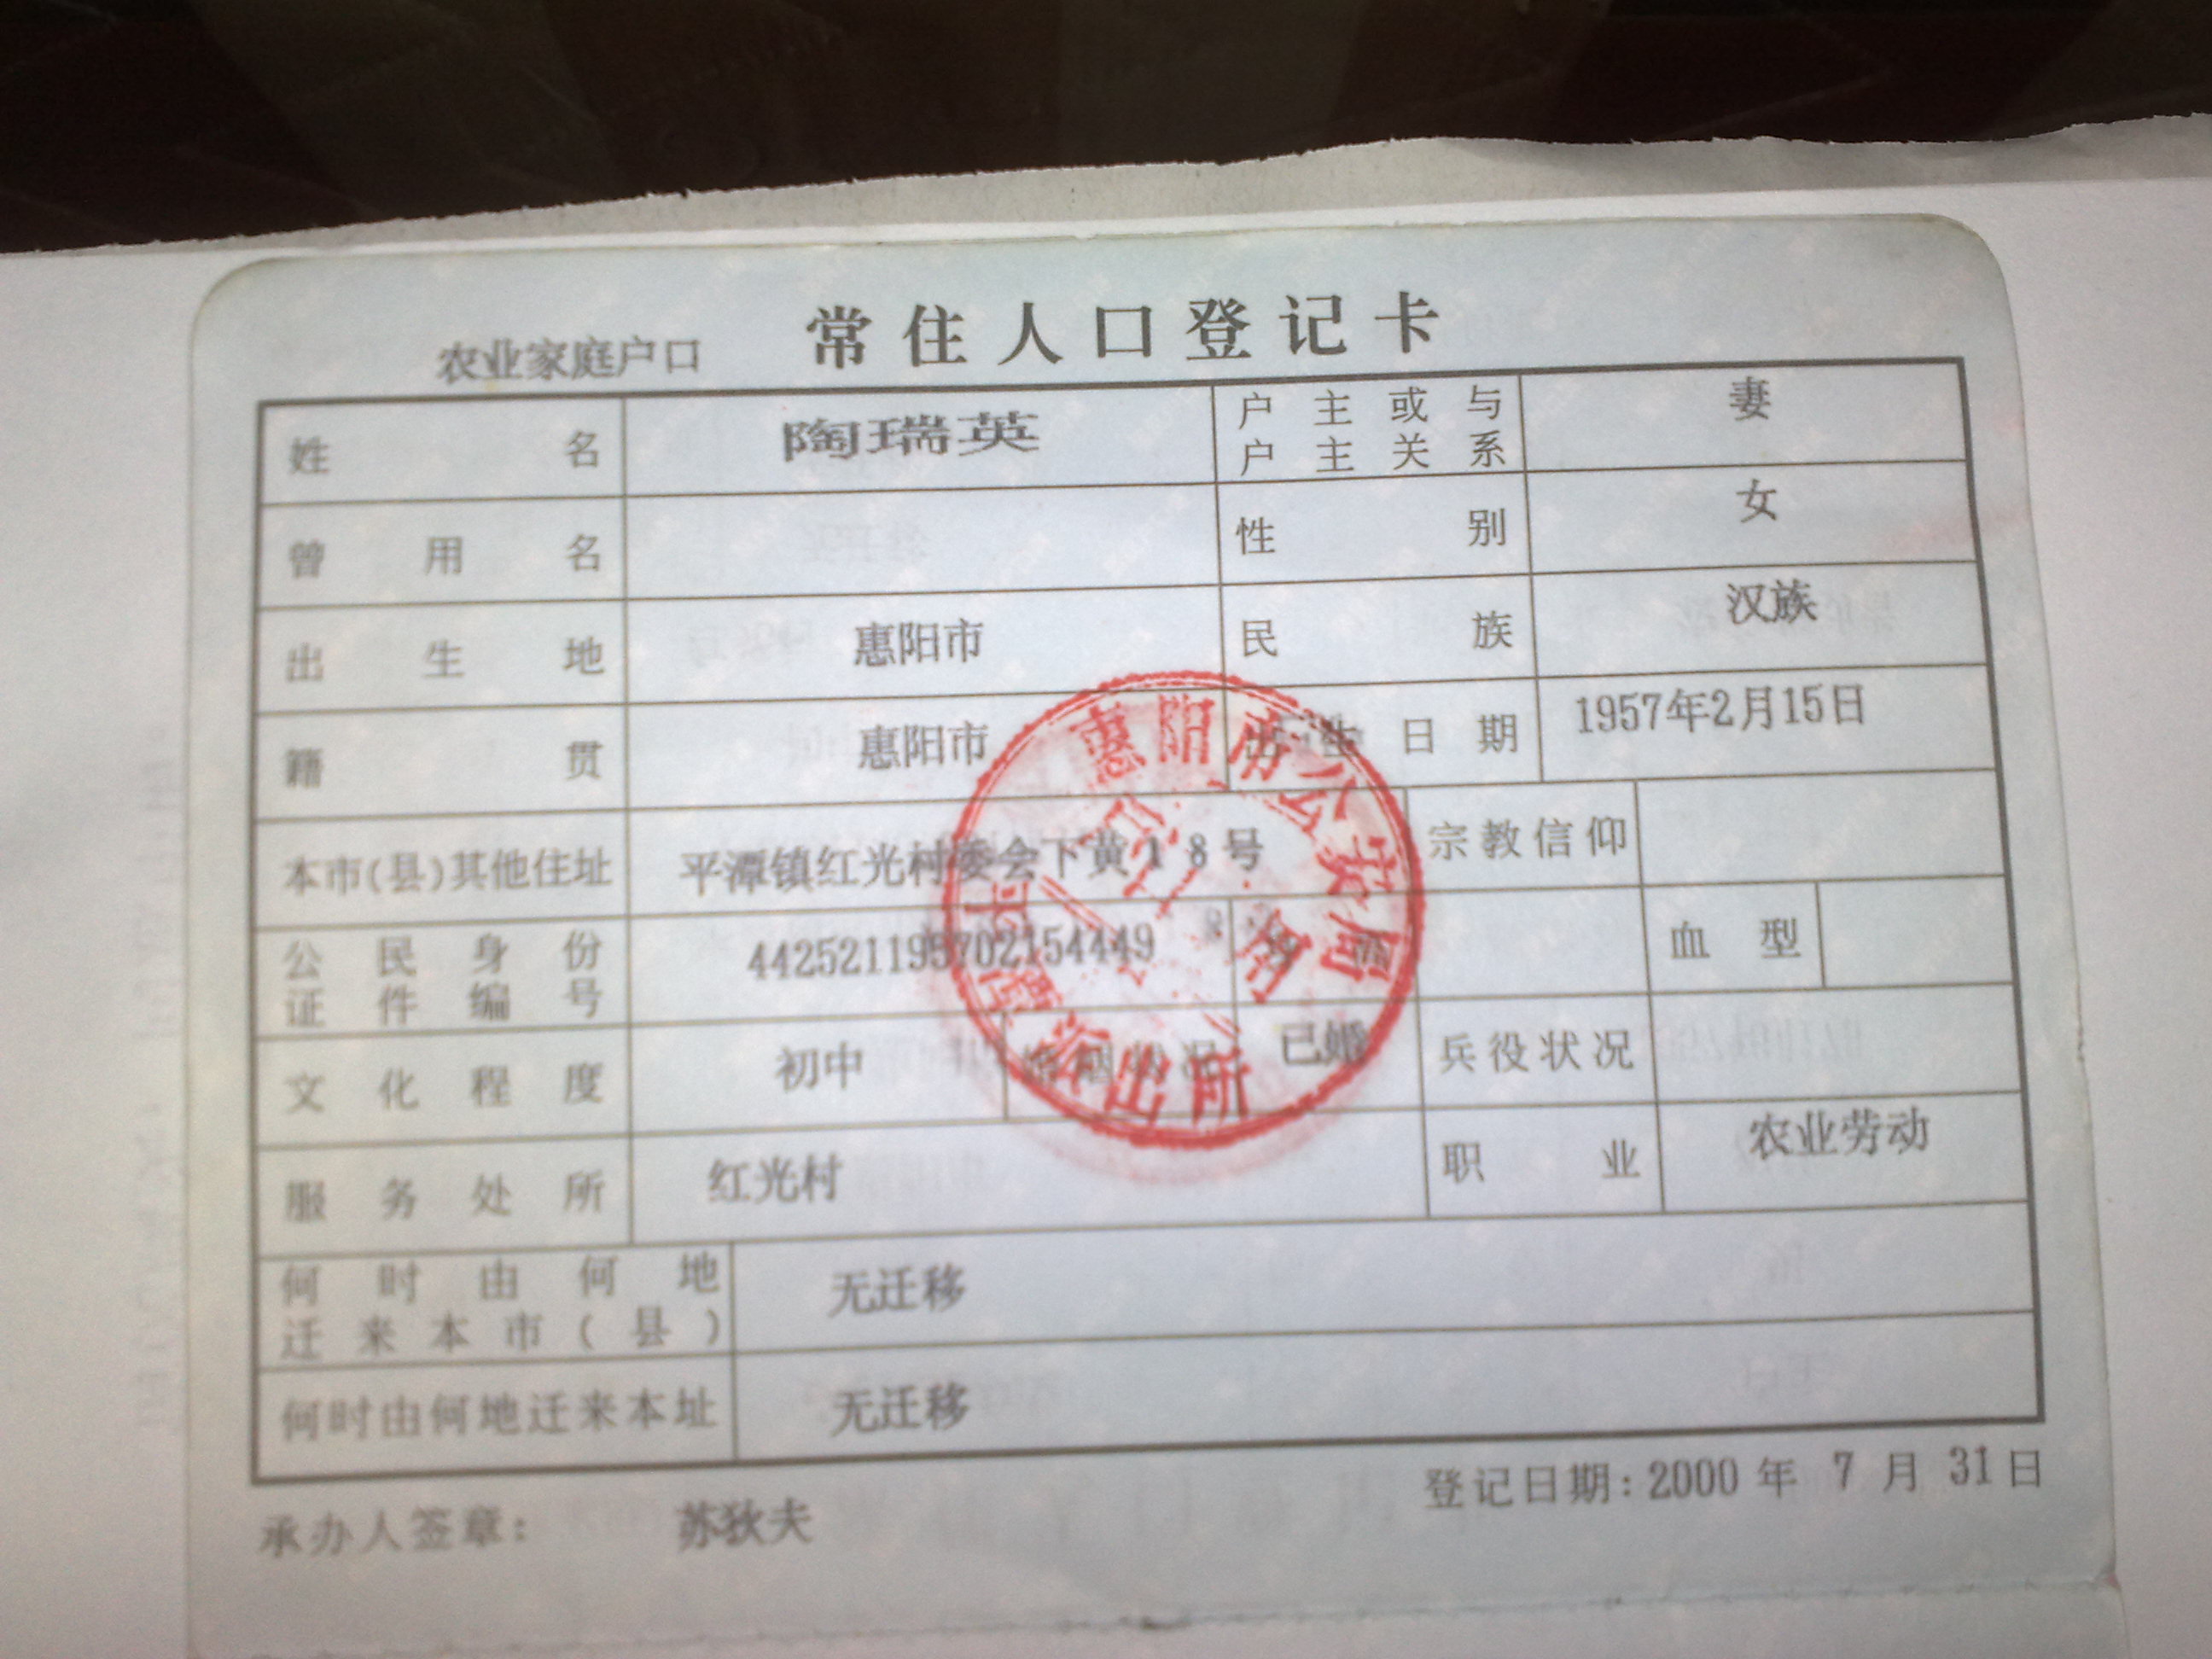 农业家庭户口 常住人口登记卡
姓名 陶瑞英 户主或与户主关系 妻
曾用名 性别 女
出生地 惠阳市 民族 汉族
籍贯 惠阳市 出生日期 1957年2月15日
本市(县)其他住址 平潭镇红光村委会下黄18号 宗教信仰
公民身份证件编号 442521195702154449 身高 血型
文化程度 初中 婚姻状况 已婚 兵役状况
服务处所 红光村 职业 农业劳动
何时由何地迁来本市(县) 无迁移
何时由何地迁来本址 无迁移
承办人签章: 苏狄夫 登记日期:2000年7月31日
惠阳市公安局
派出所